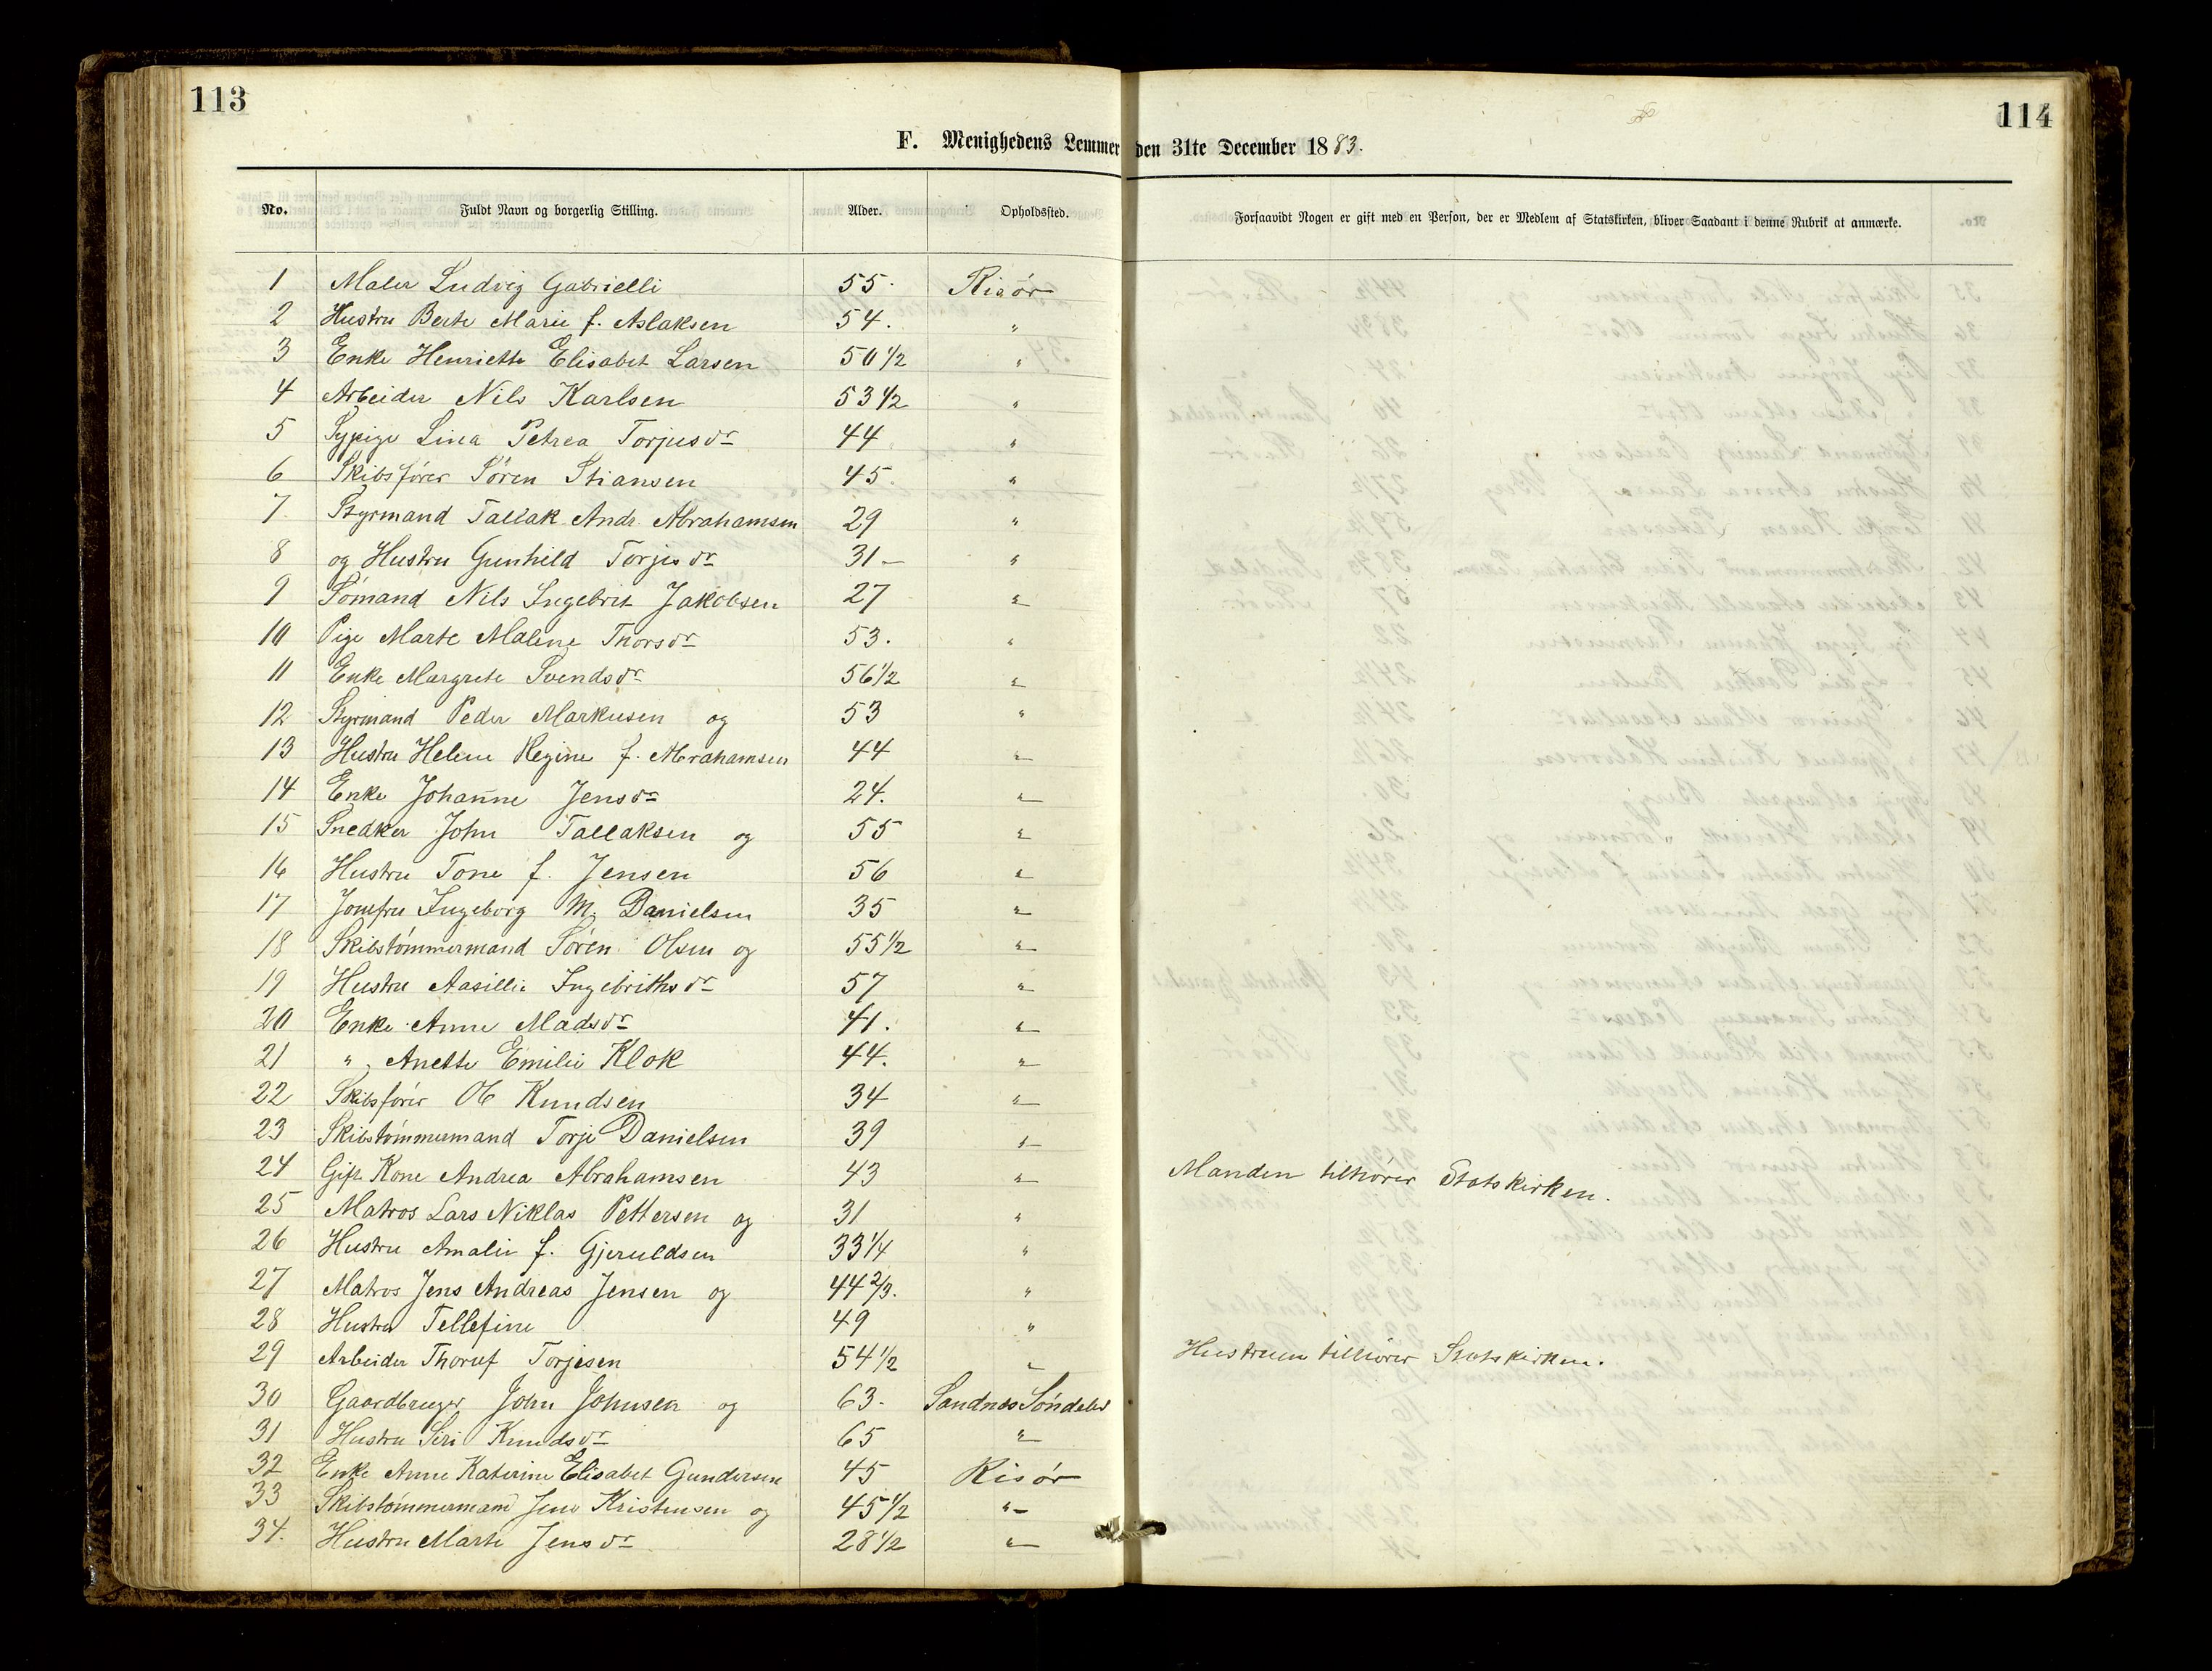 113
114
F. Menighedens Lemmer den 31te December 1883.
No. Fuldt Navn og borgerlig Stilling. Alder. Opholdssted. Forsaavidt Nogen er gift med en Person, der er Medlem af Statskirken, bliver Saadant i denne Rubrik at anmærke.
1 Maler Ludvig Gabrielli 55. Risør
2 Hustru Berte Marie f. Aslaksen 54. "
3 Enke Henriette Elisabet Larsen 50 1/2 "
4 Arbeider Nils Karlsen 53 1/2 "
5 Sypige Lina Petrea Torjusdr 44 "
6 Skibsfører Søren Stiansen 45. "
7 Styrmand Tallak Andr. Abrahamsen 29 "
8 og Hustru Gunhild Torjesdr 31 – "
9 Sømand Nils Ingebrit Jakobsen 27 "
10 Pige Marte Malene Thorsdr 53. "
11 Enke Margrete Svendsdr 56 1/2 "
12 Styrmand Peder Markusen og 53 "
13 Hustru Helene Regine f. Abrahamsen 44 "
14 Enke Johanne Jensdr 24. "
15 Snedker John Tallaksen og 55 "
16 Hustru Tone f. Jensen 56 "
17 Jomfru Ingeborg M. Danielsen 35 "
18 Skibstømmermand Søren Olsen og 55 1/2 "
19 Hustru Aasillie Ingebrithsdr 57 "
20 Enke Anne Madsdr 41. "
21 " Anette Emilie Klok 44. "
22 Skibsfører Ole Knudsen 34 "
23 Skibstømmermand Torje Danielsen 39 "
24 Gift Kone Andrea Abrahamsen 43 " Manden tilhører Statskirken.
25 Matros Lars Niklas Pettersen og 31 "
26 Hustru Amalie f. Gjeruldsen 33 1/4 "
27 Matros Jens Andreas Jensen og 44 2/3. "
28 Hustru Tellefine 49 "
29 Arbeider Thoruf Torjesen 54 1/2 " Hustruen tilhører Statskirken.
30 Gaardbruger John Johnsen og 63. Sandnes Søndeled
31 Hustru Siri Knudsdr 65 "
32 Enke Anne Katerine Elisabet Gundersen 45 Risør
33 Skibstømmermand Jens Kristensen og 45 1/2 "
34. Hustru Marte Jensdr 28 1/2 "